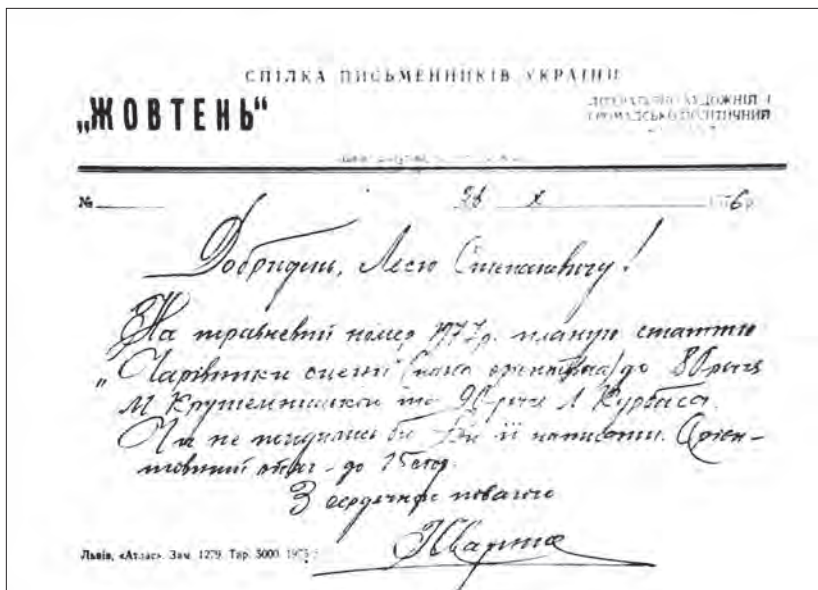 СПІЛКА ПИСЬМЕННИКІВ УКРАЇНИ
„ЖОВТЕНЬ“
ЛІТЕРАТУРНО-ХУДОЖНІЙ І
ГРОМАДСЬКО-ПОЛІТИЧНИЙ
№ 26 X 1976 р.
Добридень, Лесю Степановичу!
На травневий номер 1977 р. планую статтю
„Чарівники сцени" (назва орієнтовна) до 80-річчя
М. Крушельницького та 90-річчя Л. Курбаса.
Чи не погодились би Ви її написати. Орієн-
товний обсяг - до 15 стор.
З сердечною повагою
Львів, «Атлас». Зам. 1279. Тир. 5000. 1975